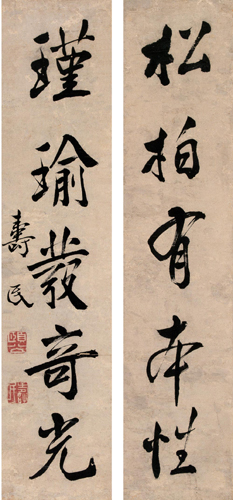 松柏有本性
瑾瑜發奇光
壽民